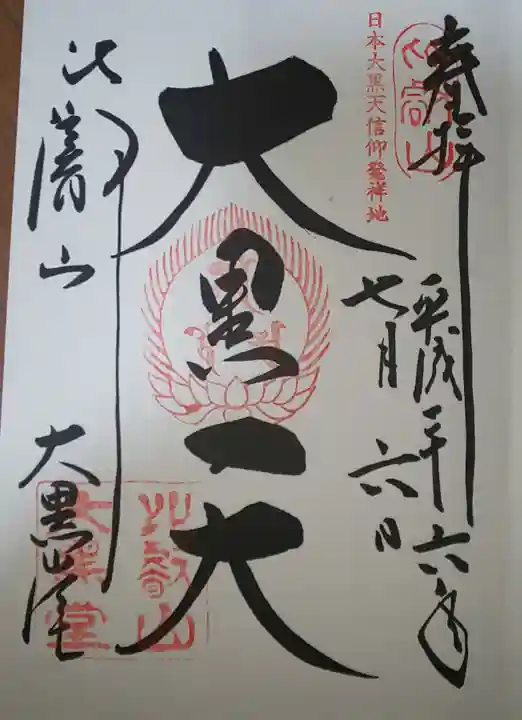 奉拝
平成二十六年
七月六日
日本大黒天信仰發祥地
大黒天
比叡山
大黒堂
比叡山
大黒堂